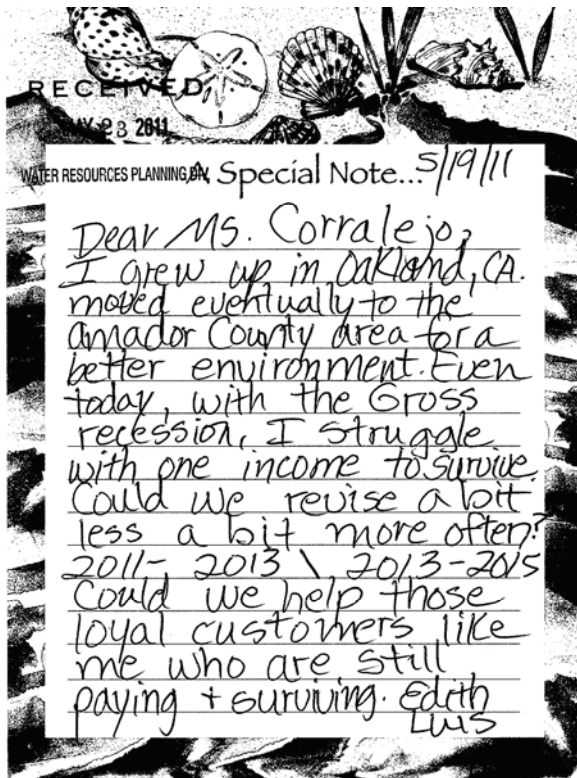 RECEIVED
MAY 23 2011
WATER RESOURCES PLANNING DIV.
A Special Note... 5/19/11
Dear Ms. Corralejo,
I grew up in Oakland, CA.
moved eventually to the
amador County area for a
better environment. Even
today, with the Gross
recession, I struggle
with one income to survive.
Could we revise a bit
less a bit more often?
2011- 2013 \ 2013-2015
Could we help those
loyal customers like
me who are still
paying + surviving. Edith
Luis